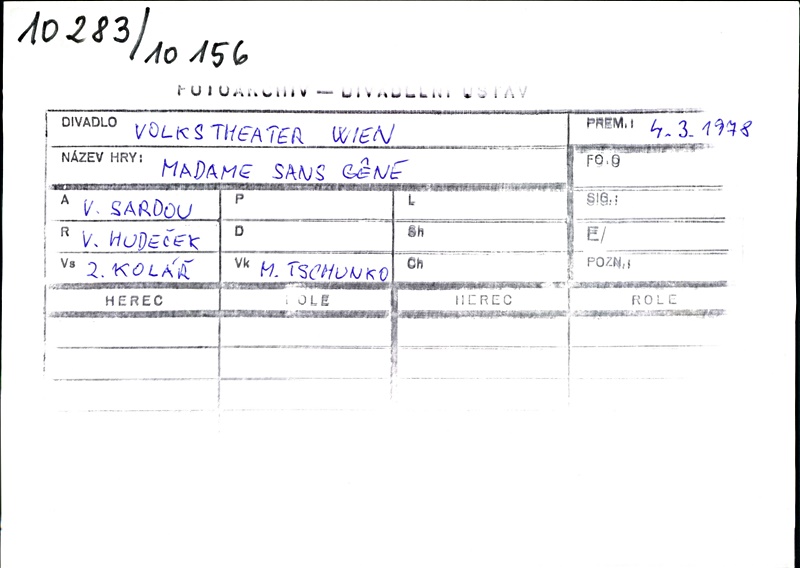 10 283/10 156
FOTOARCHIV — DIVADELNÍ ÚSTAV
DIVADLO VOLKSTHEATER WIEN PREM.: 4.3.1978
NÁZEV HRY: MADAME SANS GÊNE FO.O
A V. SARDOU P L SIG.:
R V. HUDEČEK D Sh E/
Vs Z. KOLÁŘ Vk M. TSCHUNKO Ch POZN.:
HEREC ROLE HEREC ROLE